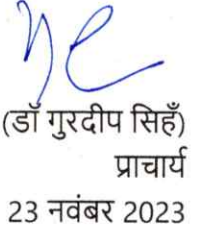 (डॉ गुरदीप सिहँ)
प्राचार्य
23 नवंबर 2023